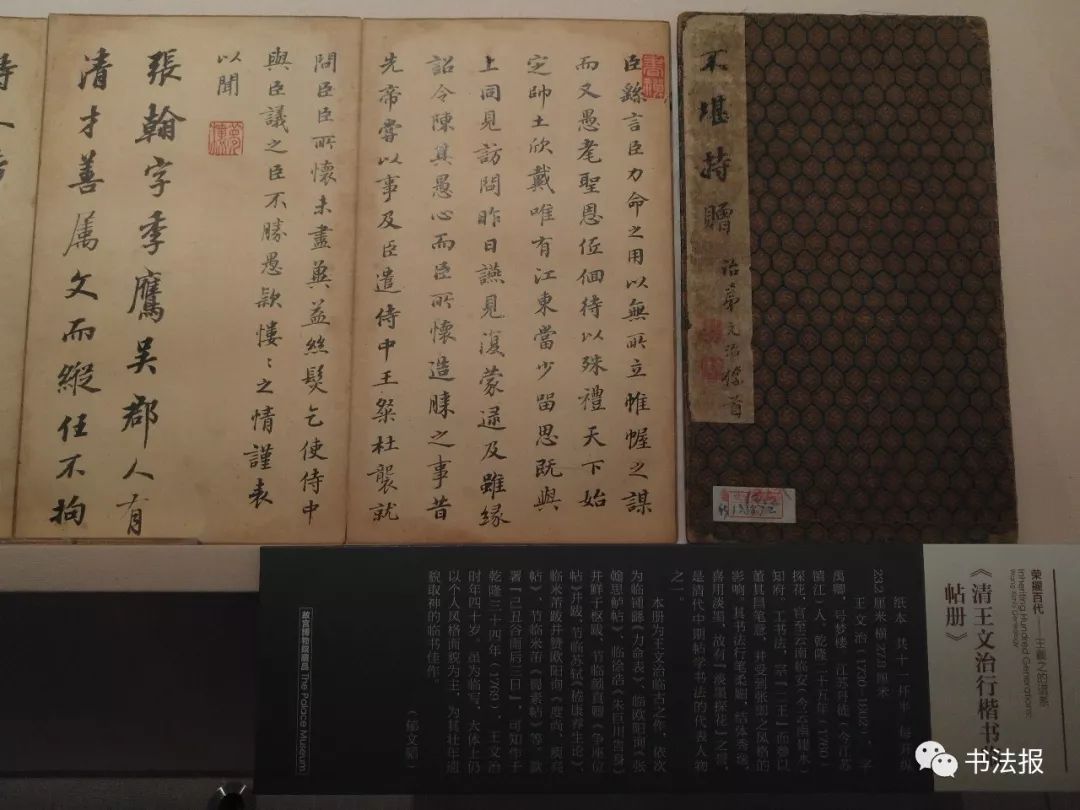 不堪持贈
臣繇言臣力命之用以無所立帷幄之謀
而又愚耄聖恩伾佪待以殊禮天下始
定帥土欣戴唯有江東當少留思既與
上同見訪問昨日讌見復蒙逮及雖緣
詔令陳其愚心而臣所懷造膝之事昔
先帝嘗以事及臣遣侍中王粲杜襲就
問臣臣所懷未盡冀益絲髮乞使侍中
與臣議之臣不勝愚款慺〻之情謹表
以聞
張翰字季鷹吴郡人有
清才善属文而縱任不拘
百代——王羲之的谱系
Inheriting Hundred Generations
《清王文治行楷书
帖册》
纸本 共十一开半 每开纵
厘米 横 厘米
王文治（1730—1802），字
禹卿，号梦楼，江苏丹徒（今江苏
镇江）人，乾隆二十五年（1760）
探花，官至云南临安（今云南建水）
知府。工书法，宗“二王”而参以
董其昌笔意，并受到张即之风格的
影响。其书法行笔柔媚，结体秀逸，
喜用淡墨，故有“淡墨探花”之誉，
是清代中期帖学书法的代表人物
之一。
本册为王文治临古之作，依次
为临钟繇《力命表》、临欧阳询《张
翰思鲈帖》、临徐浩《朱巨川告身》
并鲜于枢跋、节临颜真卿《争座位
帖》并跋、节临苏轼《
临米芾跋并赞欧阳询《度尚、庾亮
帖》、节临米芾《蜀素帖》等。款
署“己丑谷雨后三日”，可知作于
乾隆三十四年（1769），王文治
时年四十岁。虽为临写，大体上仍
以个人风格面貌为主，为其壮年遗
貌取神的临书佳作。
故宫博物院藏品 The Palace Museum
书法报